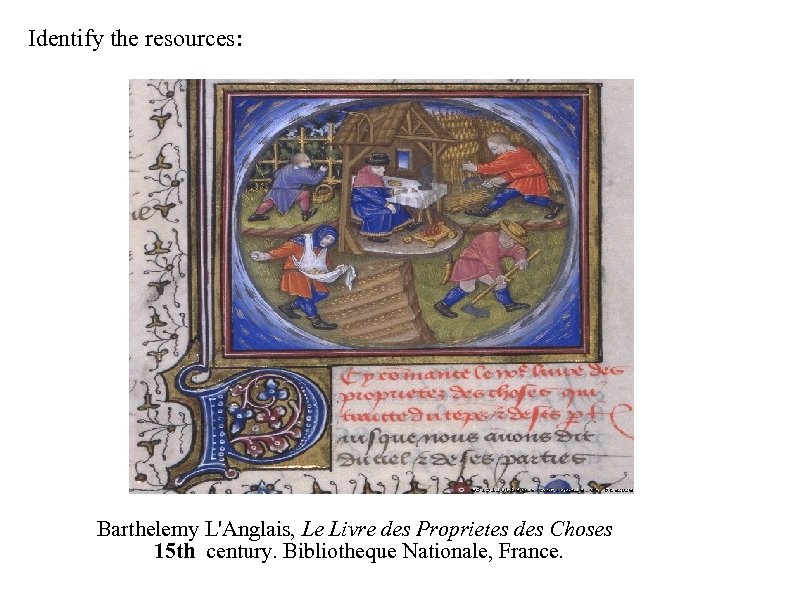 Identify the resources:
Cy comance le ixe livre des
proprietez des choses qui
traitte du teps & de ses pti
usque nous avons dit
du ciel & de ses parties
Barthelemy L'Anglais, Le Livre des Proprietes des Choses
15th century. Bibliotheque Nationale, France.